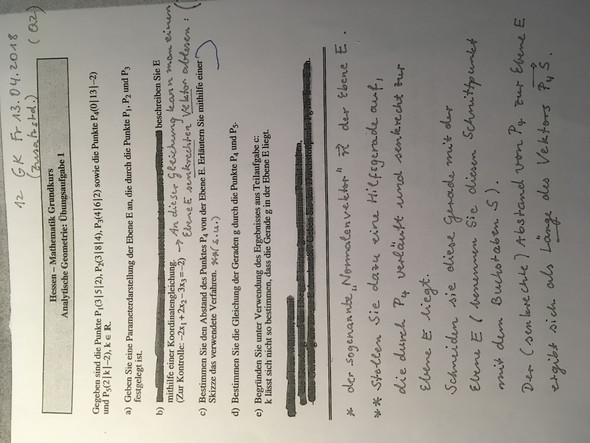 12 GK Fr 13.04.2018
(Q2)
(Zusatzstd.)
Hessen – Mathematik Grundkurs
Analytische Geometrie: Übungsaufgabe 1
Gegeben sind die Punkte P₁(3|5|2), P₂(3|8|4), P₃(4|6|2) sowie die Punkte P₄(0|13|–2)
und P₅(2|k|–2), k ∈ R.
a) Geben Sie eine Parameterdarstellung der Ebene E an, die durch die Punkte P₁, P₂ und P₃
festgelegt ist.
b) beschreiben Sie E
mithilfe einer Koordinatengleichung. → An dieser Gleichung kann man einen
(Zur Kontrolle: –2x₁ + 2x₂ – 3x₃ = –2) Ebene E senkrechten Vektor ablesen:
c) Bestimmen Sie den Abstand des Punktes P₄ von der Ebene E. Erläutern Sie mithilfe einer
Skizze das verwendete Verfahren. (s.u.)
d) Bestimmen Sie die Gleichung der Geraden g durch die Punkte P₄ und P₅.
e) Begründen Sie unter Verwendung des Ergebnisses aus Teilaufgabe c:
k lässt sich nicht so bestimmen, dass die Gerade g in der Ebene E liegt.
* der sogenannte „Normalenvektor" n⃗ der Ebene E.
** Stellen Sie dazu eine Hilfsgerade auf,
die durch P₄ verläuft und senkrecht zur
Ebene E liegt.
Schneiden sie diese Gerade mit der
Ebene E (benennen Sie diesen Schnittpunkt
mit dem Buchstaben S).
Der (senkrechte) Abstand von P₄ zur Ebene E
ergibt sich als Länge des Vektors P₄S.